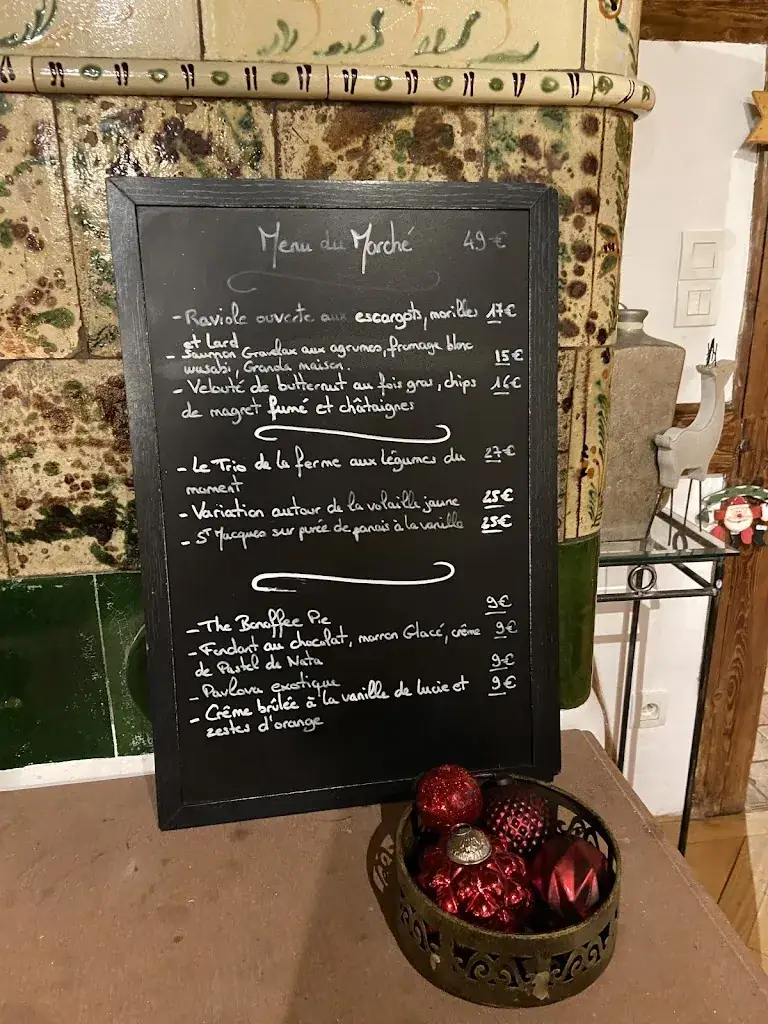 Menu du Marché 49€
- Raviole ouverte aux escargots, morilles 17€
et Lard
- Saumon Gravelax aux agrumes, fromage blanc 15€
wasabi, Granola maison.
- Velouté de butternut au fois gras, chips 16€
de magret fumé et châtaignes
- Le Trio de la ferme aux légumes du 27€
moment
- Variation autour de la volaille jaune 25€
- St Jacques sur purée de panais à la vanille 25€
- The Banoffee Pie 9€
- Fondant au chocolat, marron Glacé, crème 9€
de Pastel de Nata
- Pavlova exotique 9€
- Crème brûlée à la vanille de lucie et 9€
zestes d'orange